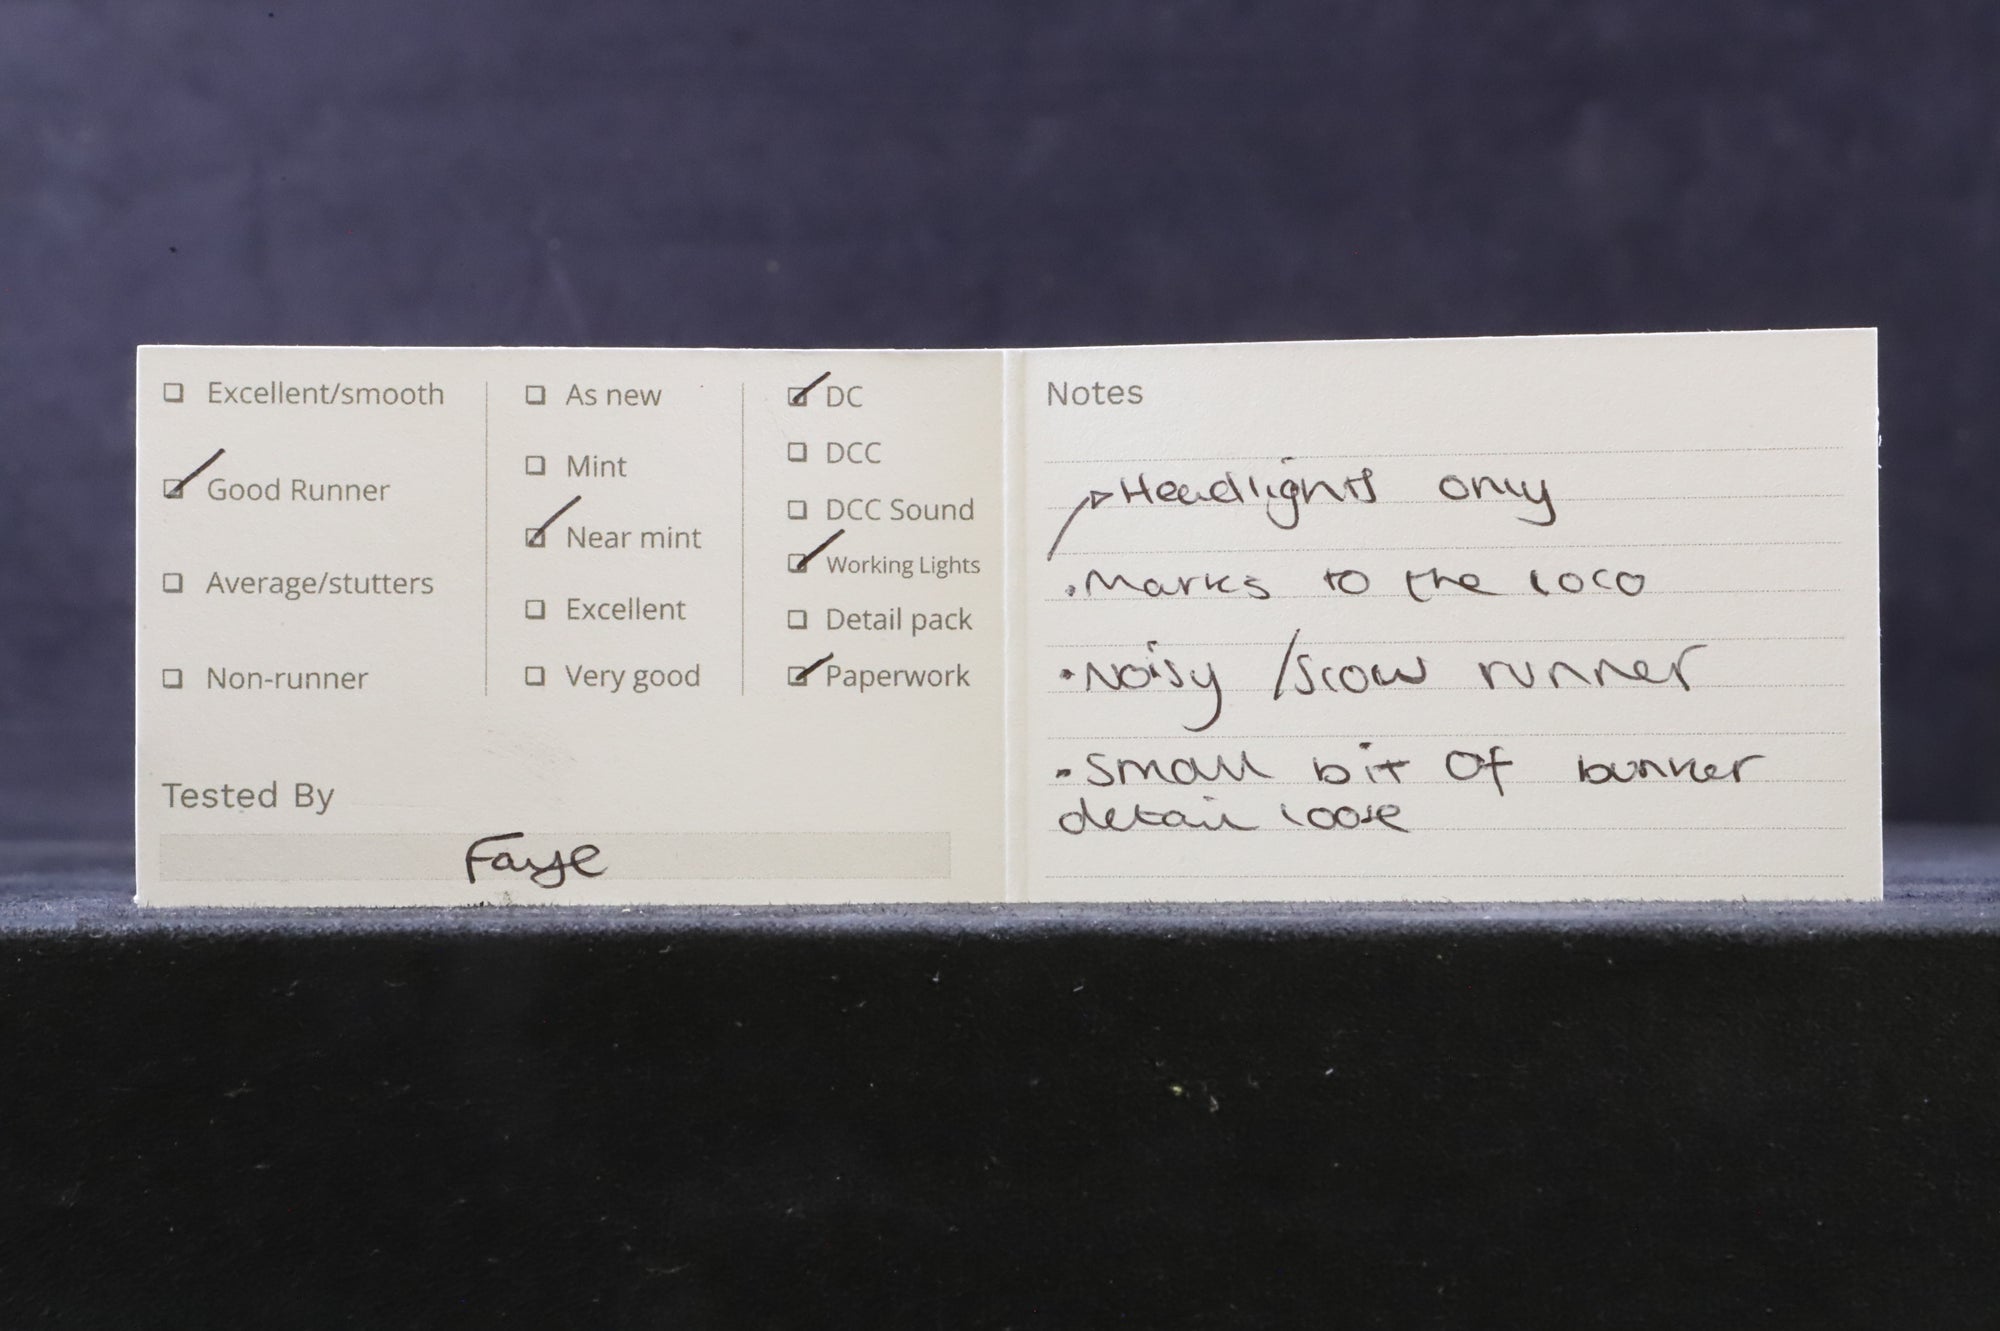 Excellent/smooth
Good Runner
Average/stutters
Non-runner
As new
Mint
Near mint
Excellent
Very good
DC
DCC
DCC Sound
Working Lights
Detail pack
Paperwork
Tested By
Faye
Notes
Headlights only
• Marks to the loco
• Noisy / slow runner
• Small bit of bunker
detail loose